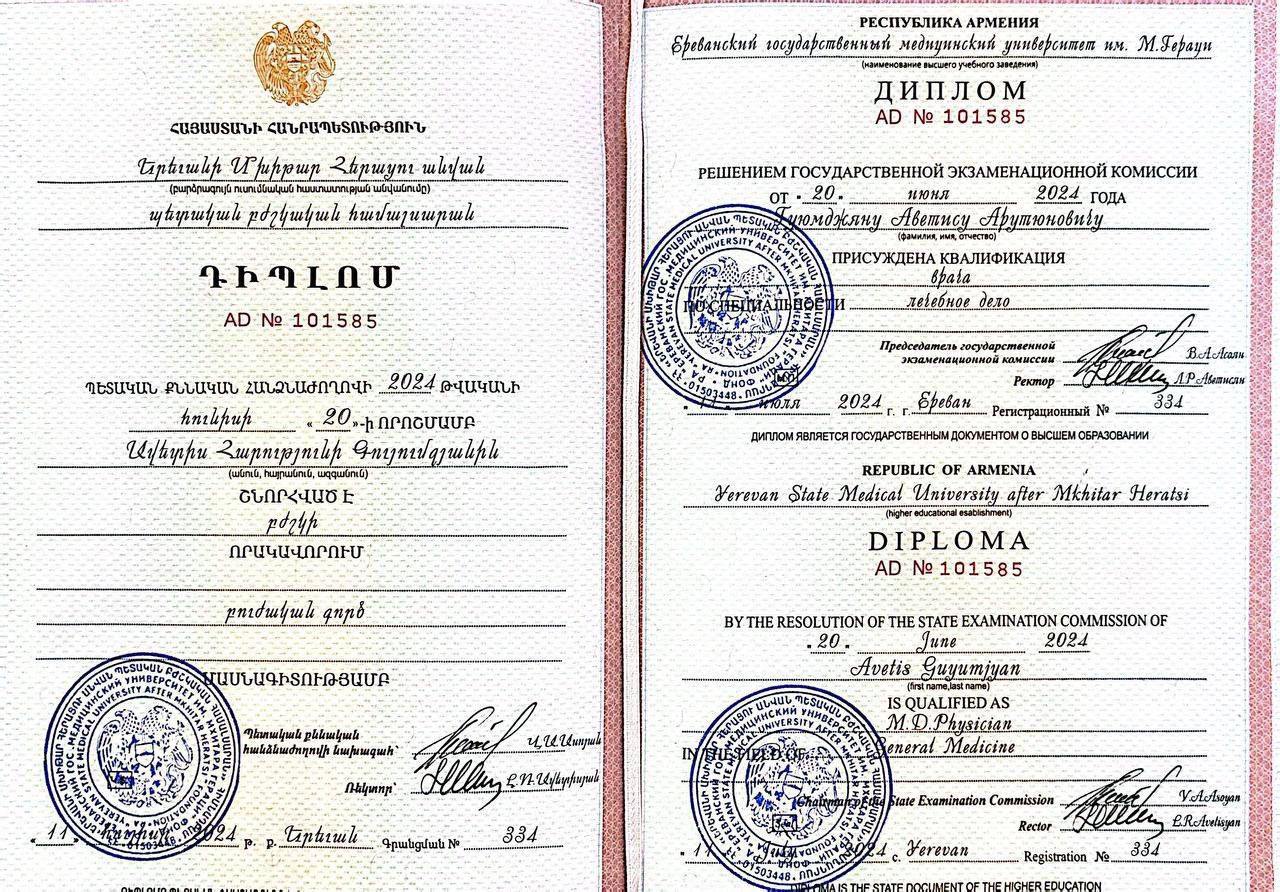 ՀԱՅԱՍՏԱՆԻ ՀԱՆՐԱՊԵՏՈՒԹՅՈՒՆ
Երևանի Մխիթար Հերացու անվան
(բարձրագույն ուսումնական հաստատության անվանումը)
պետական բժշկական համալսարան
ԴԻՊԼՈՄ
AD № 101585
ՊԵՏԱԿԱՆ ՔՆՆԱԿԱՆ ՀԱՆՁՆԱԺՈՂՈՎԻ 2024 ԹՎԱԿԱՆԻ
հունիսի «20»-ի ՈՐՈՇՄԱՄԲ
Ավետիս Հարությունի Գույումջյանին
(անուն, հայրանուն, ազգանուն)
ՇՆՈՐՀՎԱԾ Է
բժշկի
ՈՐԱԿԱՎՈՐՈՒՄ
բուժական գործ
ՄԱՍՆԱԳԻՏՈՒԹՅԱՄԲ
Պետական քննական
հանձնաժողովի նախագահ՝ Վ.Ա.Ասոյան
Ռեկտոր՝ Լ.Ռ.Ավետիսյան
«11 2024 թ. ք. Երևան Գրանցման № 334
РЕСПУБЛИКА АРМЕНИЯ
Ереванский государственный медицинский университет им. М.Гераци
(наименование высшего учебного заведения)
ДИПЛОМ
AD № 101585
РЕШЕНИЕМ ГОСУДАРСТВЕННОЙ ЭКЗАМЕНАЦИОННОЙ КОМИССИИ
ОТ "20" июня 2024 ГОДА
Гуюмджяну Аветису Арутюновичу
(фамилия, имя, отчество)
ПРИСУЖДЕНА КВАЛИФИКАЦИЯ
врача
ПО СПЕЦИАЛЬНОСТИ лечебное дело
Председатель государственной
экзаменационной комиссии В.А.Асоян
Ректор Л.Р.Аветисян
"11 июля 2024 г. г. Ереван Регистрационный № 334
ДИПЛОМ ЯВЛЯЕТСЯ ГОСУДАРСТВЕННЫМ ДОКУМЕНТОМ О ВЫСШЕМ ОБРАЗОВАНИИ
REPUBLIC OF ARMENIA
Yerevan State Medical University after Mkhitar Heratsi
(higher educational esablishment)
DIPLOMA
AD № 101585
BY THE RESOLUTION OF THE STATE EXAMINATION COMMISSION OF
"20" June 2024
Avetis Guyumjyan
(first name,last name)
IS QUALIFIED AS
M.D.Physician
IN THE FIELD OF General Medicine
Chairman of the State Examination Commission V.A.Asoyan
Rector L.R.Avetisyan
"11 2024 c. Yerevan Registration № 334
DIPLOMA IS THE STATE DOCUMENT OF THE HIGHER EDUCATION